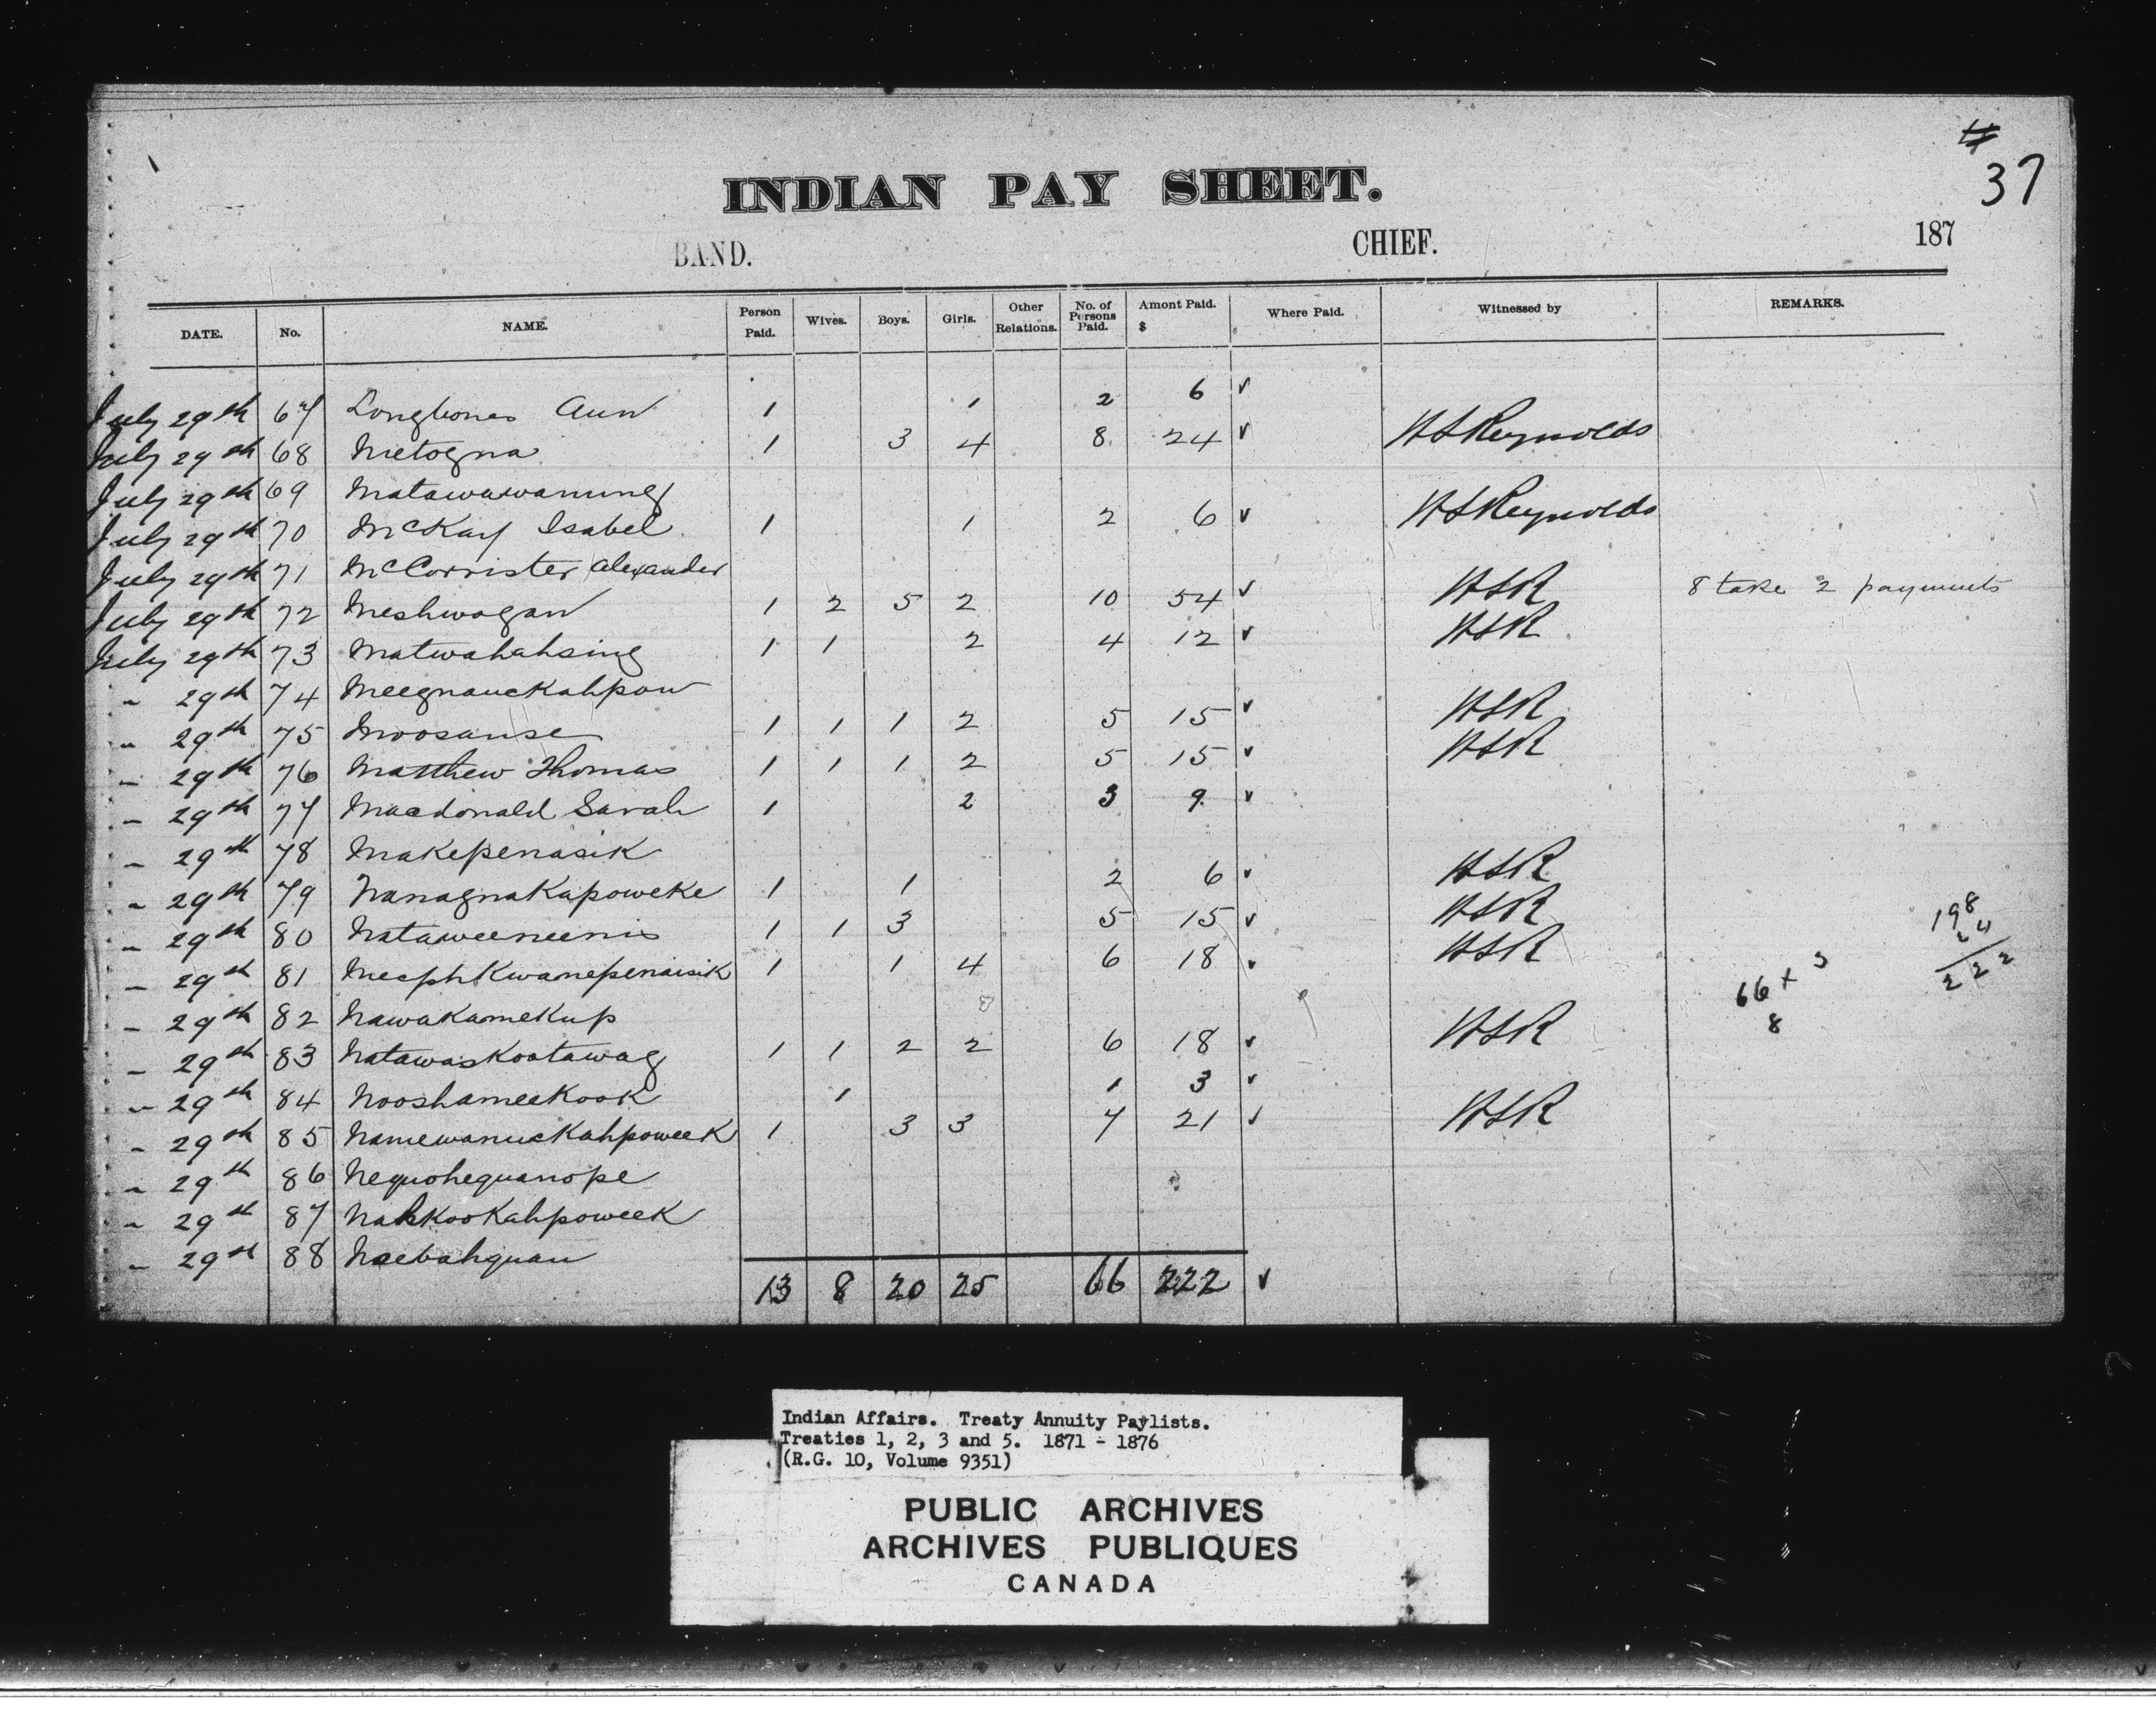 #
37
INDIAN PAY SHEET.
BAND. CHIEF. 187
DATE. No. NAME. Person Paid. Wives. Boys. Girls. Other Relations. No. of Persons Paid. Amont Paid. $ Where Paid. Witnessed by REMARKS.
July 29th 67 Longbones Ann 1 1 2 6 ✓
July 29th 68 Metogna 1 3 4 8 24 ✓ HSReynolds
July 29th 69 Matawawanung
July 29th 70 McKay Isabel 1 1 2 6 ✓ HSReynolds
July 29th 71 McCorrister Alexander
July 29th 72 Meshwagan 1 2 5 2 10 54 ✓ HSR 8 take 2 payments
July 29th 73 Matwahahsing 1 1 2 4 12 ✓ HSR
" 29th 74 Meegnauckahpow
" 29th 75 Moosause 1 1 1 2 5 15 ✓ HSR
" 29th 76 Matthew Thomas 1 1 1 2 5 15 ✓ HSR
" 29th 77 Macdonald Sarah 1 2 3 9 ✓
" 29th 78 Makepenasik
" 29th 79 Nanagnakapoweke 1 1 2 6 ✓ HSR
" 29th 80 Nataweeneenis 1 1 3 5 15 ✓ HSR
" 29th 81 Mecphkwanepenaisik 1 1 4 6 18 ✓ HSR
198
24
222
66 x 3
8
" 29th 82 Nawakamekup
" 29th 83 Natawaskootawag 1 1 2 2 6 18 ✓ HSR
" 29th 84 Nooshameekook 1 1 3 ✓
" 29th 85 Namewanuckahpoweek 1 3 3 7 21 ✓ HSR
" 29th 86 Nequohequanope
" 29th 87 Nahkookahpoweek
" 29th 88 Naebahquan
13 8 20 25 66 222 ✓
Indian Affairs. Treaty Annuity Paylists.
Treaties 1, 2, 3 and 5. 1871 - 1876
(R.G. 10, Volume 9351)
PUBLIC ARCHIVES
ARCHIVES PUBLIQUES
CANADA